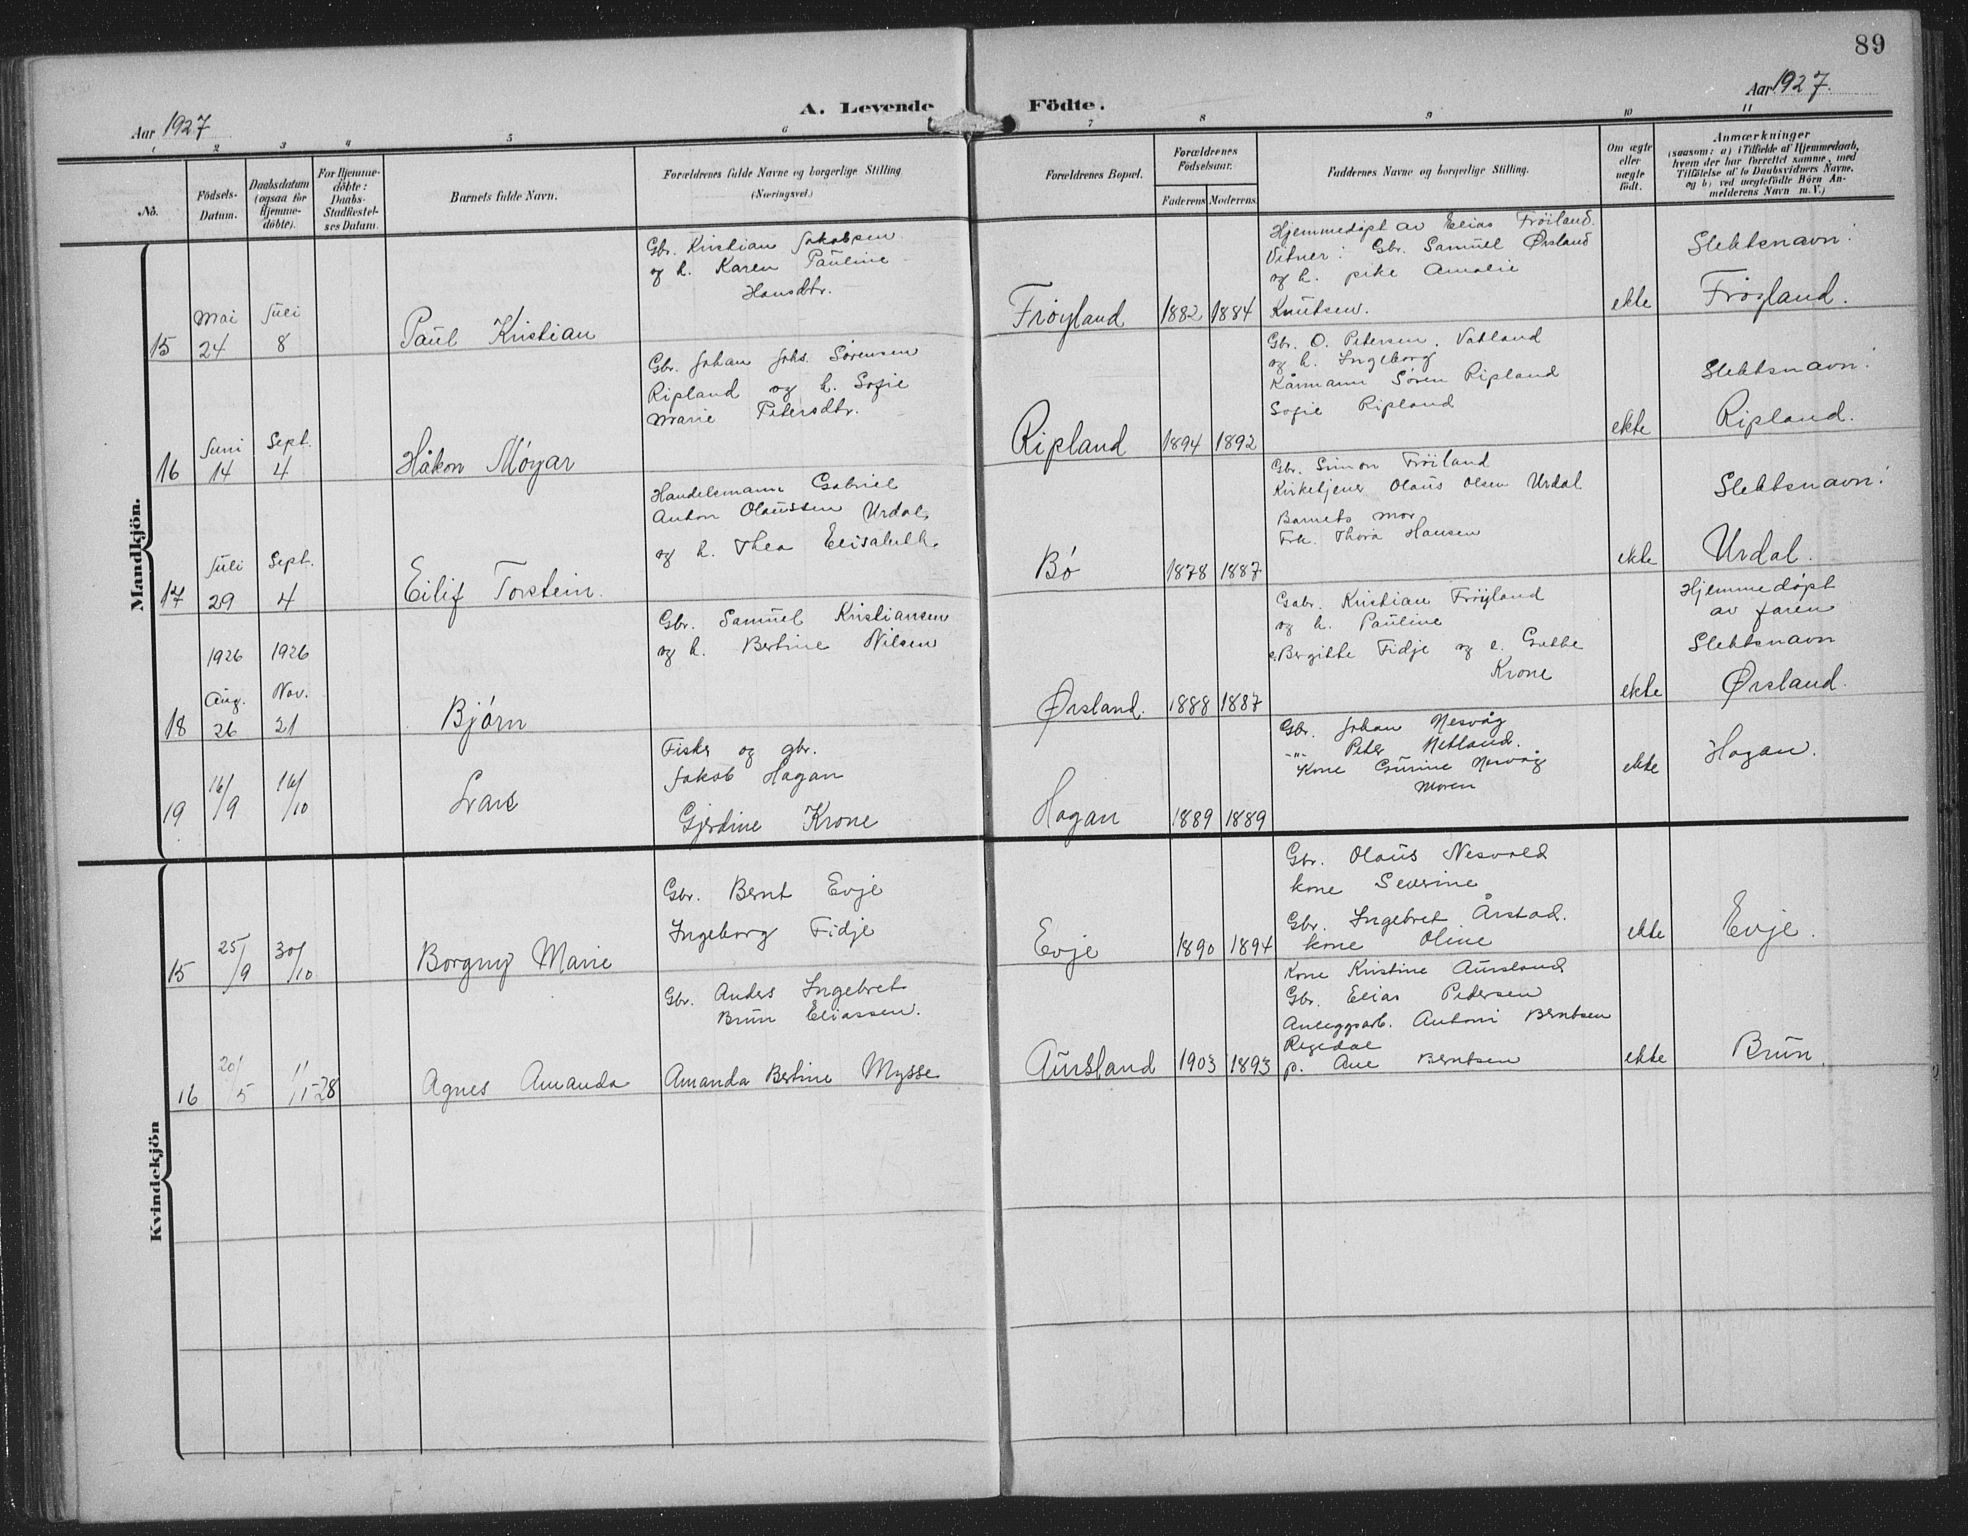 89
Aar 1927
A. Levende Födte.
Aar 1927.
1 2 3 4 5 6 7 8 9 10 11
No.
Födsels-
Datum.
Daabsdatum
(ogsaa for
Hjemme-
döbte).
For Hjemme-
döbte:
Daabs-
Stadfæstel-
ses Datum.
Barnets fulde Navn.
Forældrenes fulde Navne og borgerlige Stilling
(Næringsvei.)
Forældrenes Bopæl.
Forældrenes
Födselsaar.
Faderens Moderens
Faddernes Navne og borgerlige Stilling.
Om ægte
eller
uægte
födt.
Anmærkninger
(saasom: a) i Tilfælde af Hjemmedaab,
hvem der har forrettet samme, med
Tilföielse af to Daabsvidners Navne,
og b) ved uægtefödte Börn An-
melderens Navn m. V.)
Mandkjön.
15
Mai
24
Juli
8
Paul Kristian
Gbr. Kristian Jakobsen
og h. Karen Pauline
Hansdtr.
Frøyland
1882 1884
Hjemmedøpt av Elias Frøiland.
Vitner: Gbr. Samuel Ørsland
og h. pike Amalie
Knutsen.
ekte
Slektsnavn:
Frøyland.
16
Juni
14
Sept.
4
Håkon Møyar
Gbr. Johan Johs. Sørensen
Ripland og h. Sofie
Marie Petersdtr.
Ripland
1894 1892
Gbr. O. Petersen. Vatland
og h. Ingeborg
Kårmann Søren Ripland
Sofie Ripland
ekte
Slektsnavn:
Ripland.
17
Juli
29
Sept.
4
Eilif Torstein.
Handelsmann Gabriel
Anton Olaussen Urdal
og h. Thea Elisabeth
Bø
1878 1887
Gbr. Simon Frøiland
Kirketjener Olaus Olsen Urdal
Barnets mor
Frk. Thora Hansen
ekte
Slektsnavn:
Urdal.
18
1926
Aug.
26
1926
Nov.
21
Bjørn
Gbr. Samuel Kristiansen
og h. Bertine Nilsen
Ørsland.
1888 1887
Gabr. Kristian Frøyland
og h. Pauline
e. Bergitte Fidje og e. Grethe
Krone
ekte
Hjemmedøpt
av faren
Slektsnavn
Ørsland.
19
16/9
16/10
Lars
Fisker og gbr.
Jakob Hagan
Gjerdine Krone
Hagan
1889 1889
Gbr. Johan Nesvåg
-"- Peter Netland.
Kone Gurine Nesvåg
Moren
ekte
Hagan.
Kvindekjön
15
25/9
30/10
Borgny Marie
Gbr. Bernt Evje
Ingeborg Fidje
Evje
1890 1894
Gbr. Olaus Nesvold
kone Severine
Gbr. Ingebret Årstad.
kone Oline
ekte
Evje.
16
20/5
11/1 28
Agnes Amanda
Gbr. Anders Ingebret
Brun Eliassen.
Amanda Bertine Mysse
Aursland
1903 1893
Kone Kristine Aursland
Gbr. Elias Pedersen
Anleggsarb. Antoni Berntsen
Regedal
p. Ane Berntsen
ekte
Brun.